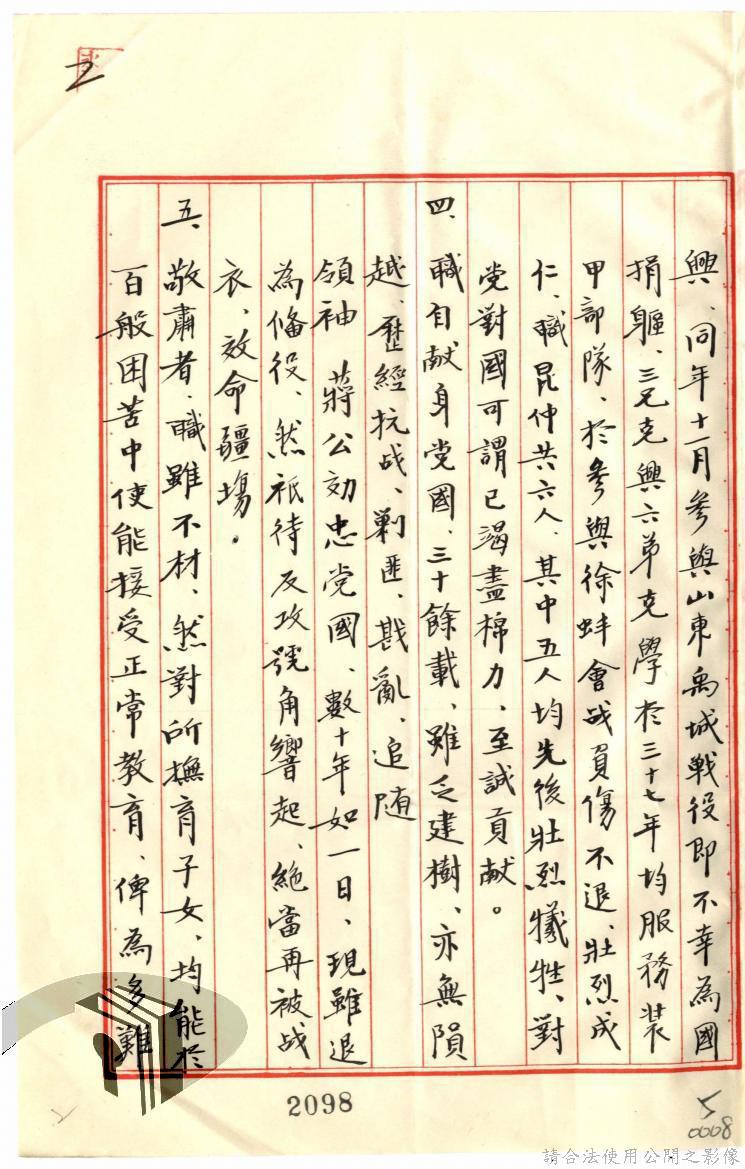 興、同年十一月參與山東禹城戰役即不幸為國
捐軀、三兄克興六弟克學於三十七年均服務裝
甲部隊、於參與徐蚌會战負傷不退、壯烈成
仁、職昆仲共六人、其中五人均先後壯烈犧牲、對
党對國可謂已竭盡棉力、至誠貢献。
四、職自献身党國、三十餘載、雖乏建樹、亦無隕
越、歷經抗战、剿匪、戡亂、追随
領袖 蔣公効忠党國、數十年如一日、現雖退
為備役、然祇待反攻號角響起、絶當再被战
衣、效命疆場。
五、敬肅者、職雖不材、然對所撫育子女、均能於
百般困苦中使能接受正常教育、俾為多難
2098
5
0008
請合法使用公開之影像